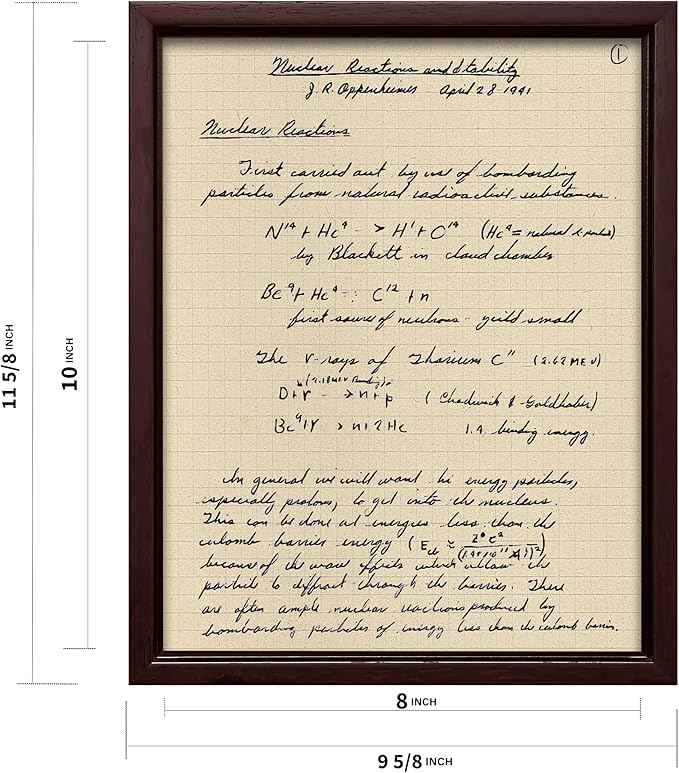 ①
Nuclear Reactions and Stability
J. R. Oppenheimer April 28 - 1941
Nuclear Reactions
First carried out by use of bombarding
particles from natural radioactive substances.
N¹⁴ + He⁴ -> H¹ + C¹⁴ (He⁴ = natural α-particle)
by Blackett in cloud chamber
Be⁹ + He⁴ -> C¹² + n
first source of neutrons - yield small
The γ-rays of Thorium C" (2.62 MEV)
(2.18 MEV Binding)
D + γ -> n + p (Chadwick & Goldhaber)
Be⁹ + γ -> n + 2He 1.9 binding energy.
In general we will want hi energy particles,
especially protons, to get into the nucleus.
This can be done at energies less than the
culomb barrier energy
because of the wave effects which allow the
particle to diffract through the barrier. There
are often ample nuclear reactions produced by
bombarding particles of energy less than the culomb barrier.
11 5/8 INCH
10 INCH
8 INCH
9 5/8 INCH